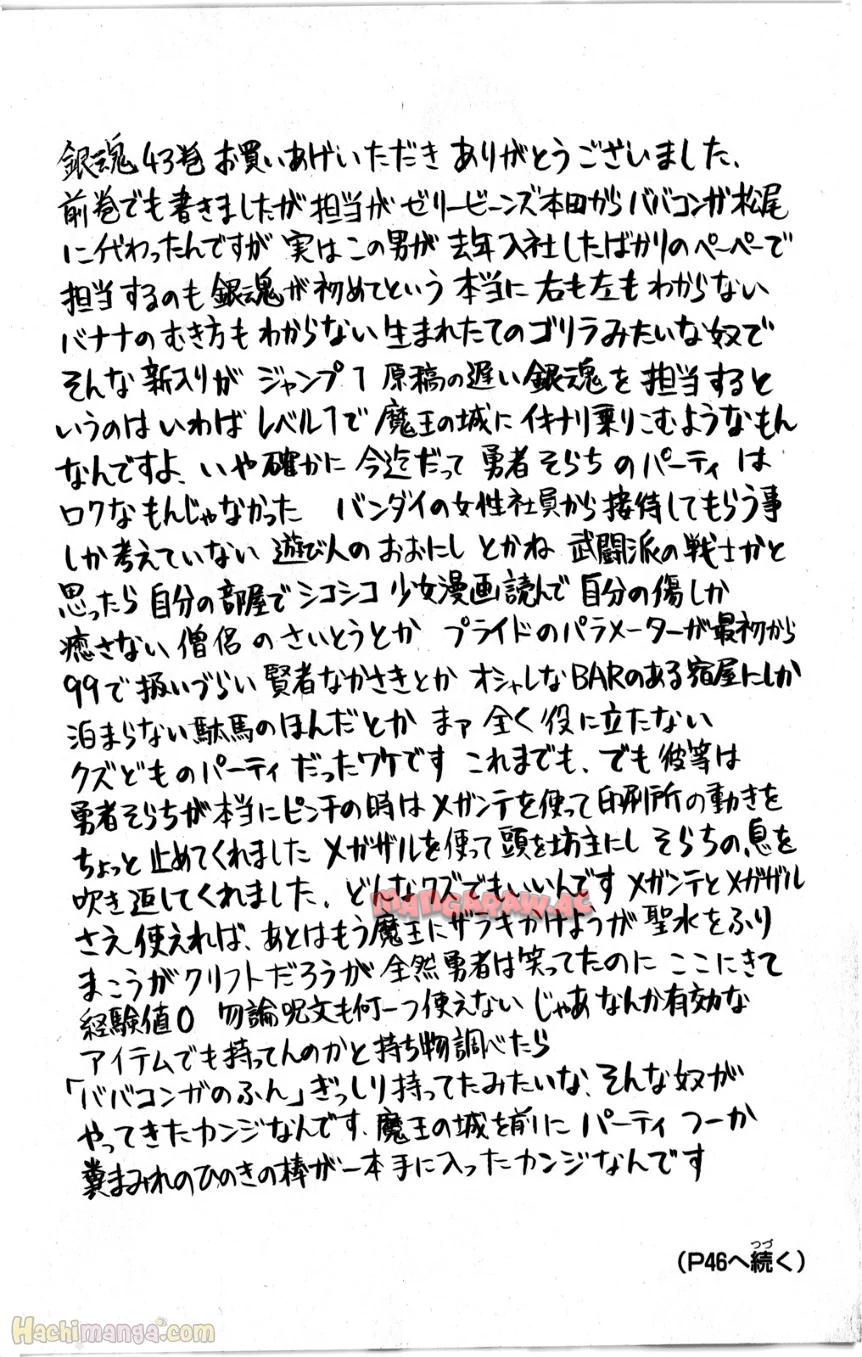 銀魂43巻 お買いあげいただき ありがとうございました、
前巻でも書きましたが 担当が ゼリービーンズ本田からババコンガ松尾
に代わったんですが 実はこの男が 去年入社したばかりのペーペーで
担当するのも 銀魂が初めてという 本当に 右も左もわからない
バナナのむき方もわからない 生まれたてのゴリラみたいな奴で
そんな 新入りが ジャンプ1 原稿の遅い銀魂を 担当すると
いうのは いわば レベル1で 魔王の城に イキナリ乗りこむようなもん
なんですよ、いや確かに 今迄だって 勇者そらちのパーティは
ロクなもんじゃなかった バンダイの女性社員から 接待してもらう事
しか考えていない 遊び人のおおにし とかね 武闘派の戦士かと
思ったら 自分の部屋で シコシコ 少女漫画読んで 自分の傷しか
癒さない 僧侶のさいとうとか プライドのパラメーターが最初から
99で 扱いづらい 賢者なかさきとか オシャレなBARのある宿屋にしか
泊まらない 駄馬のほんだ とか まァ 全く役に立たない
クズどものパーティだったワケです これまでも、でも彼等は
勇者そらちが本当にピンチの時は メガンテを使って 印刷所の動きを
ちょっと止めてくれました メガザルを使って 頭を坊主にし そらちの息を
吹き返してくれました、どんなクズでもいいんです メガンテとメガザル
さえ使えれば、あとはもう魔王にザラキかけようが 聖水をふり
まこうが クリフトだろうが 全然勇者は笑ってたのに ここにきて
経験値0 勿論呪文も何一つ使えない じゃあなんか有効な
アイテムでも持ってんのかと持ち物調べたら
「ババコンガのふん」ぎっしり持ってたみたいな、そんな奴が
やってきたカンジなんです、魔王の城を前に パーティ つーか
糞まみれのひのきの棒が一本手に入ったカンジなんです
MANGARAW.AC
つづ
(P46へ続く)
Hachimanga.com